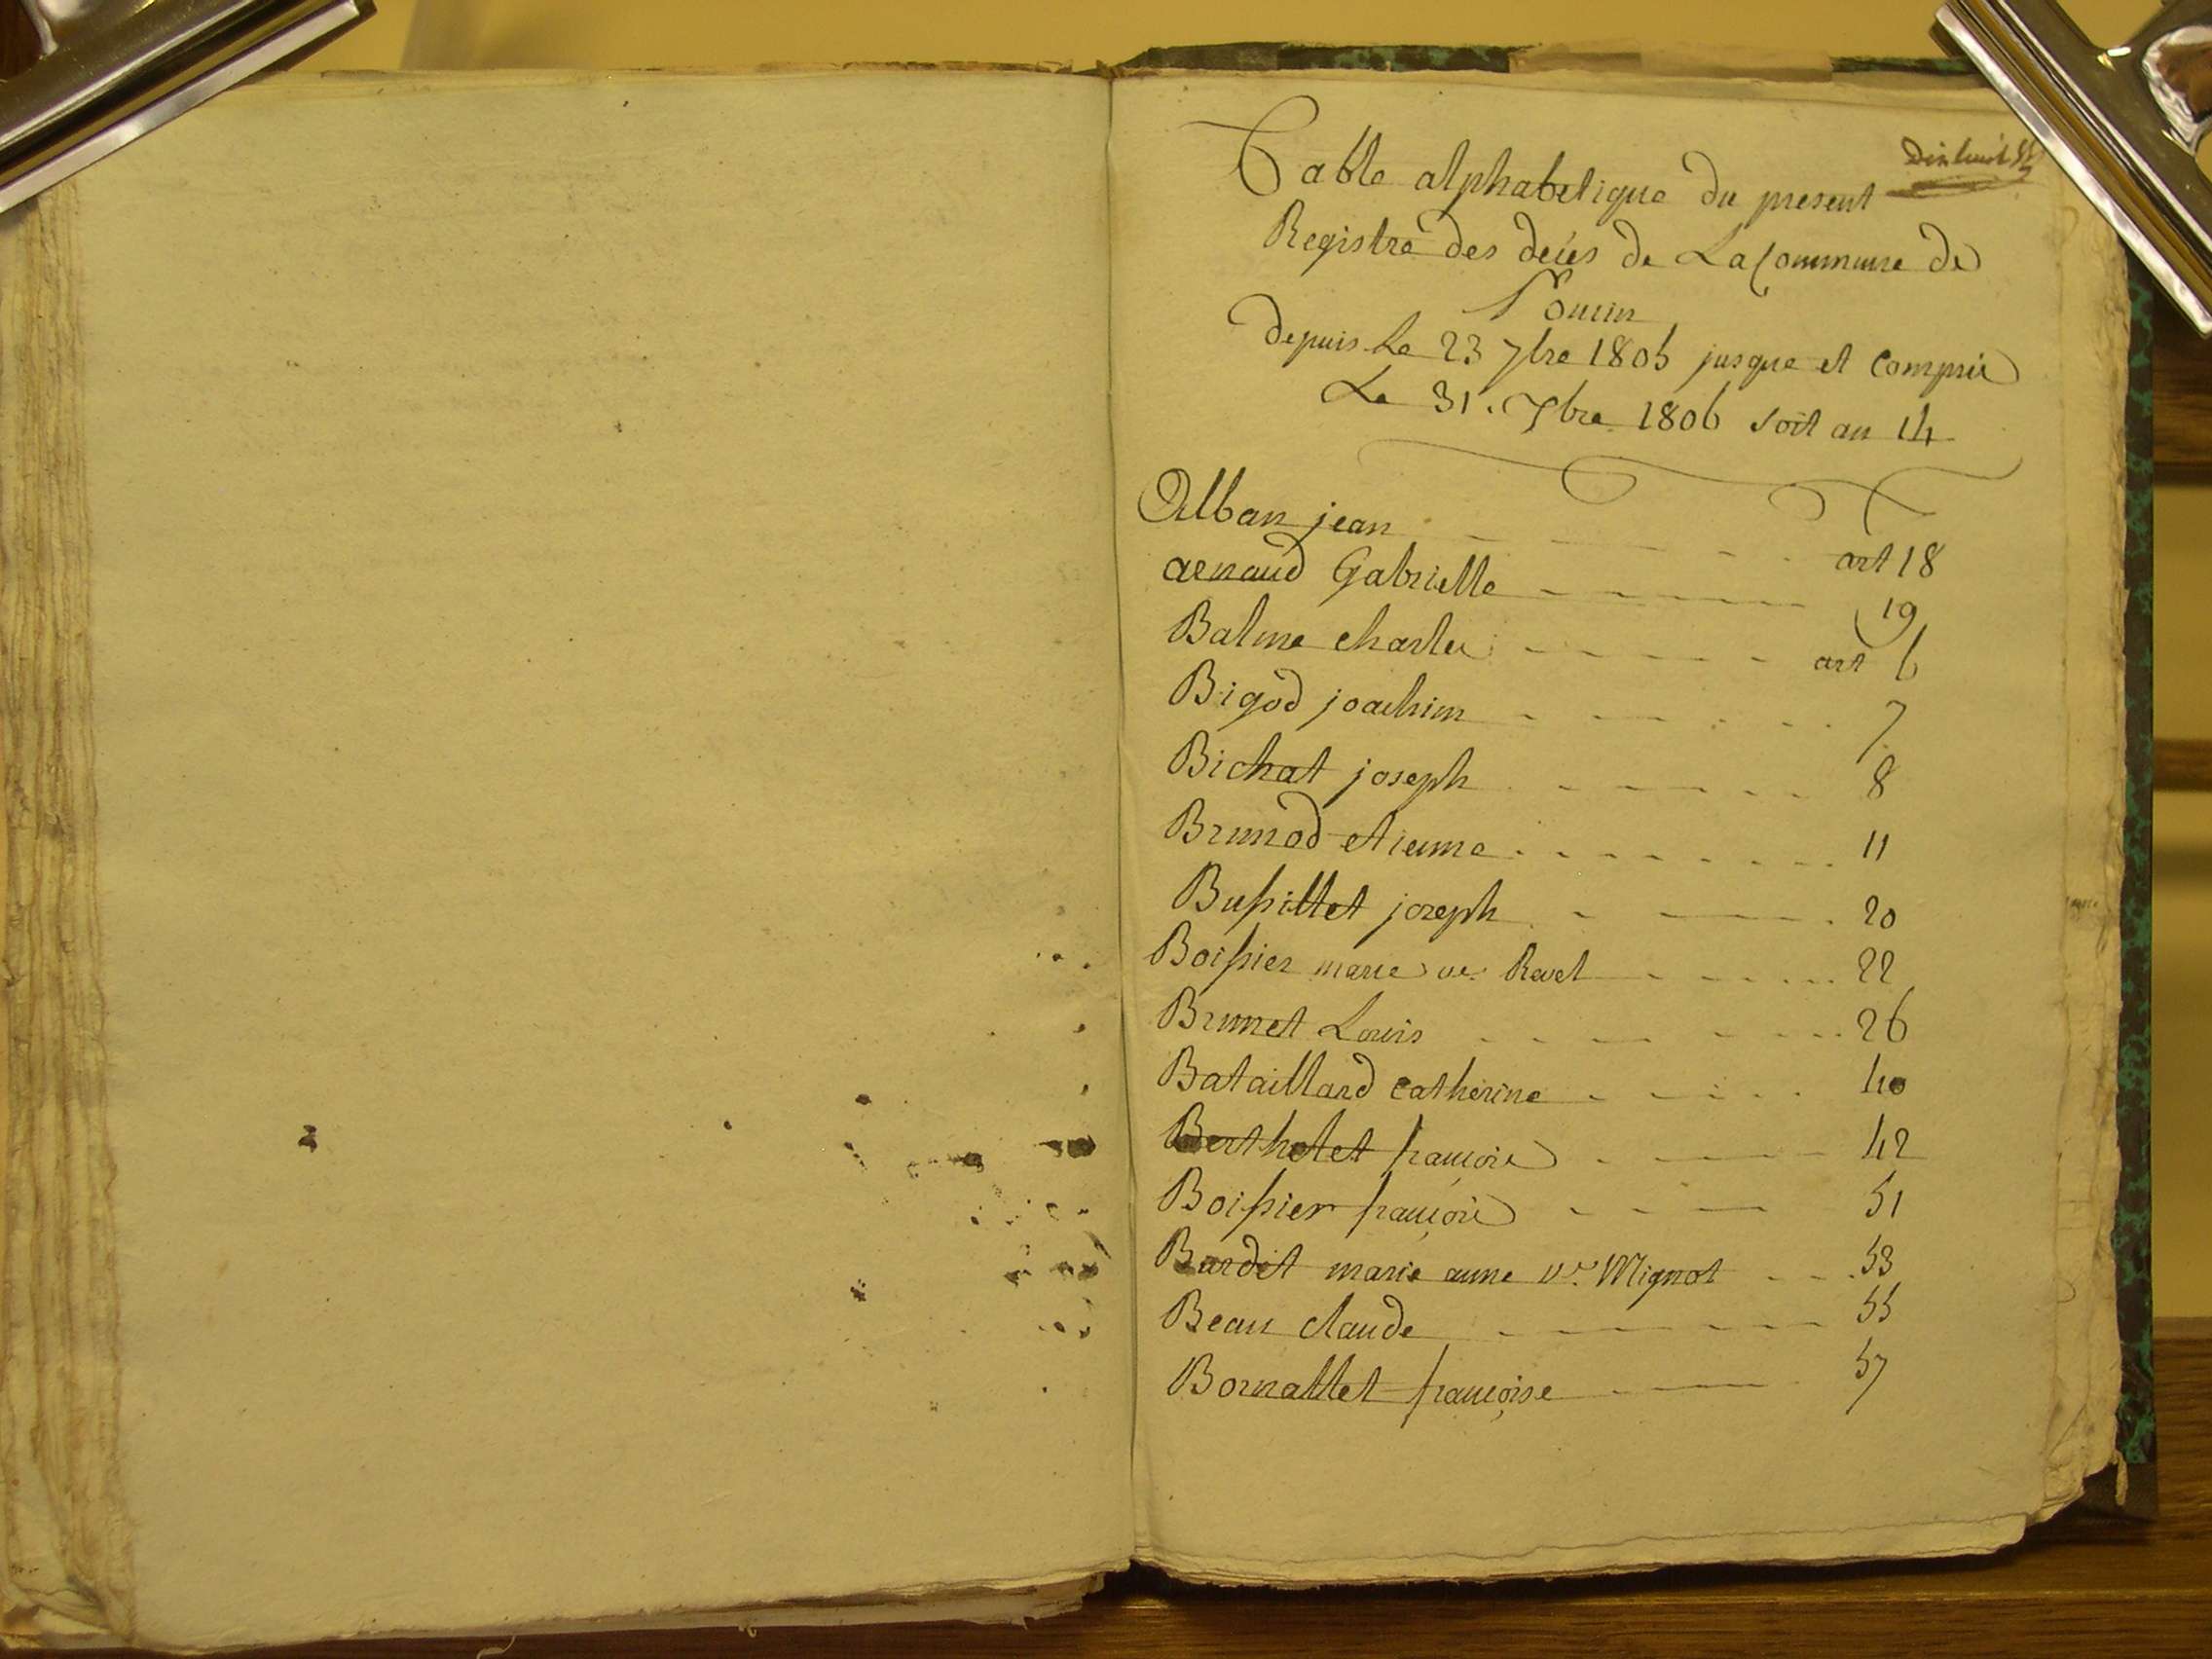 Dixhuit
Table alphabetique du present
Registre des decès de La Commune de
Poncin
depuis Le 23 7bre 1805 jusque et compris
Le 31. Xbre 1806 soit an 14
Alban jean art 18
arnaud Gabrielle 19
Balme charles art 6
Bigod joachim 7
Bichat joseph 8
Brunod etienne 11
Bussillet joseph 20
Boissier marie ve. Revel 22
Brunet Louis 26
Bataillard catherine 40
Berthelet françois 42
Boissier françois 51
Bardet marie anne ve. Mignot 53
Beau claude 55
Bornattet françoise 57